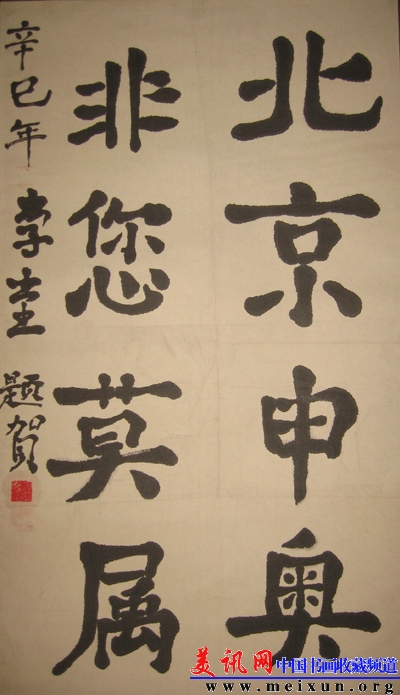 北京申奥
非您莫属
辛巳年 李奎 题贺
美讯网 中国书画收藏频道
www.meixun.org